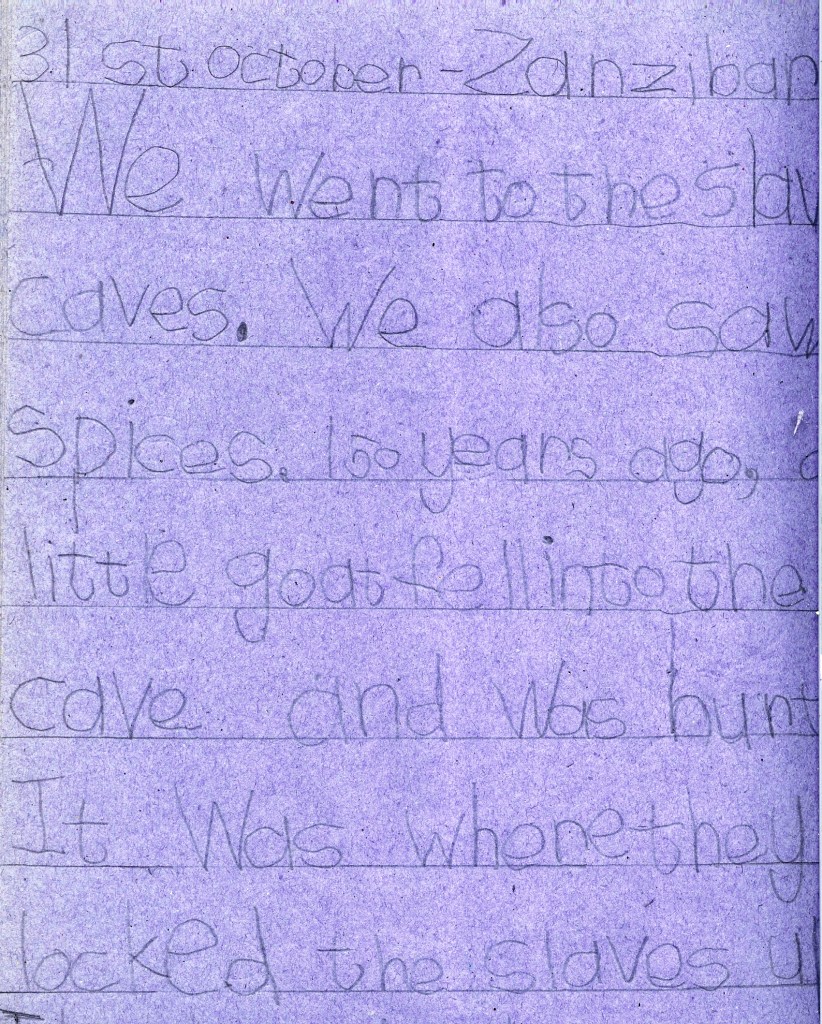 31st october - Zanzibar
We went to the slav
caves. We also saw
spices. 150 years ago, a
little goat fell into the
cave and was hurt
It was where they
locked the slaves u